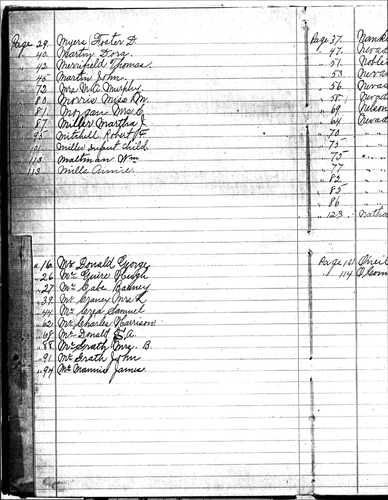 Page 29. Myers Foster D.
" 40 Martin Dora
" 42 Merrifield Thomas.
" 45 Martin John.
" 72 Mrs. Murphy
" 80 Morris Miss M.
" 81 Morgan Mrs.
" 87 Miller Martha J.
" 95 Mitchell Robert
" 101 Miller Infant child
" 113 Maltman Wm
" 113 Mills Annie.
" 16. Mc Donald George
" 26 Mc Guire Hugh
" 27 Mc Cabe Barney
" 39 Mc Craney Mrs.
" 44 Mc Crea Samuel
" 62 Mc Charles Harrison
" 64 Mc Donald S. A.
" 88 McGrath Mrs. B.
" 91 McGrath John
" 94 Mc Mannis James
Page 37.
" 47. Nevad
" 51. Noble
" 53 Nevad
" 56 Nevad
" 58. Nevad
" 60 Nelson
" 64 Nevad
" 70 " "
" 75 " "
" 75 " "
" 77 " "
" 82 " "
" 85 " "
" 86 " "
" 123
Page 101 Oneil
" 114